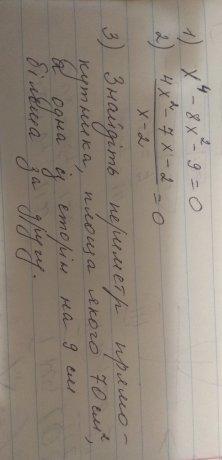 1) x⁴ - 8x² - 9 = 0
2) (4x² - 7x - 2)/(x - 2) = 0
3) Знайдіть периметр прямо-
кутника, площа якого 70 см²,
а одна зі сторін на 9 см
більша за другу.